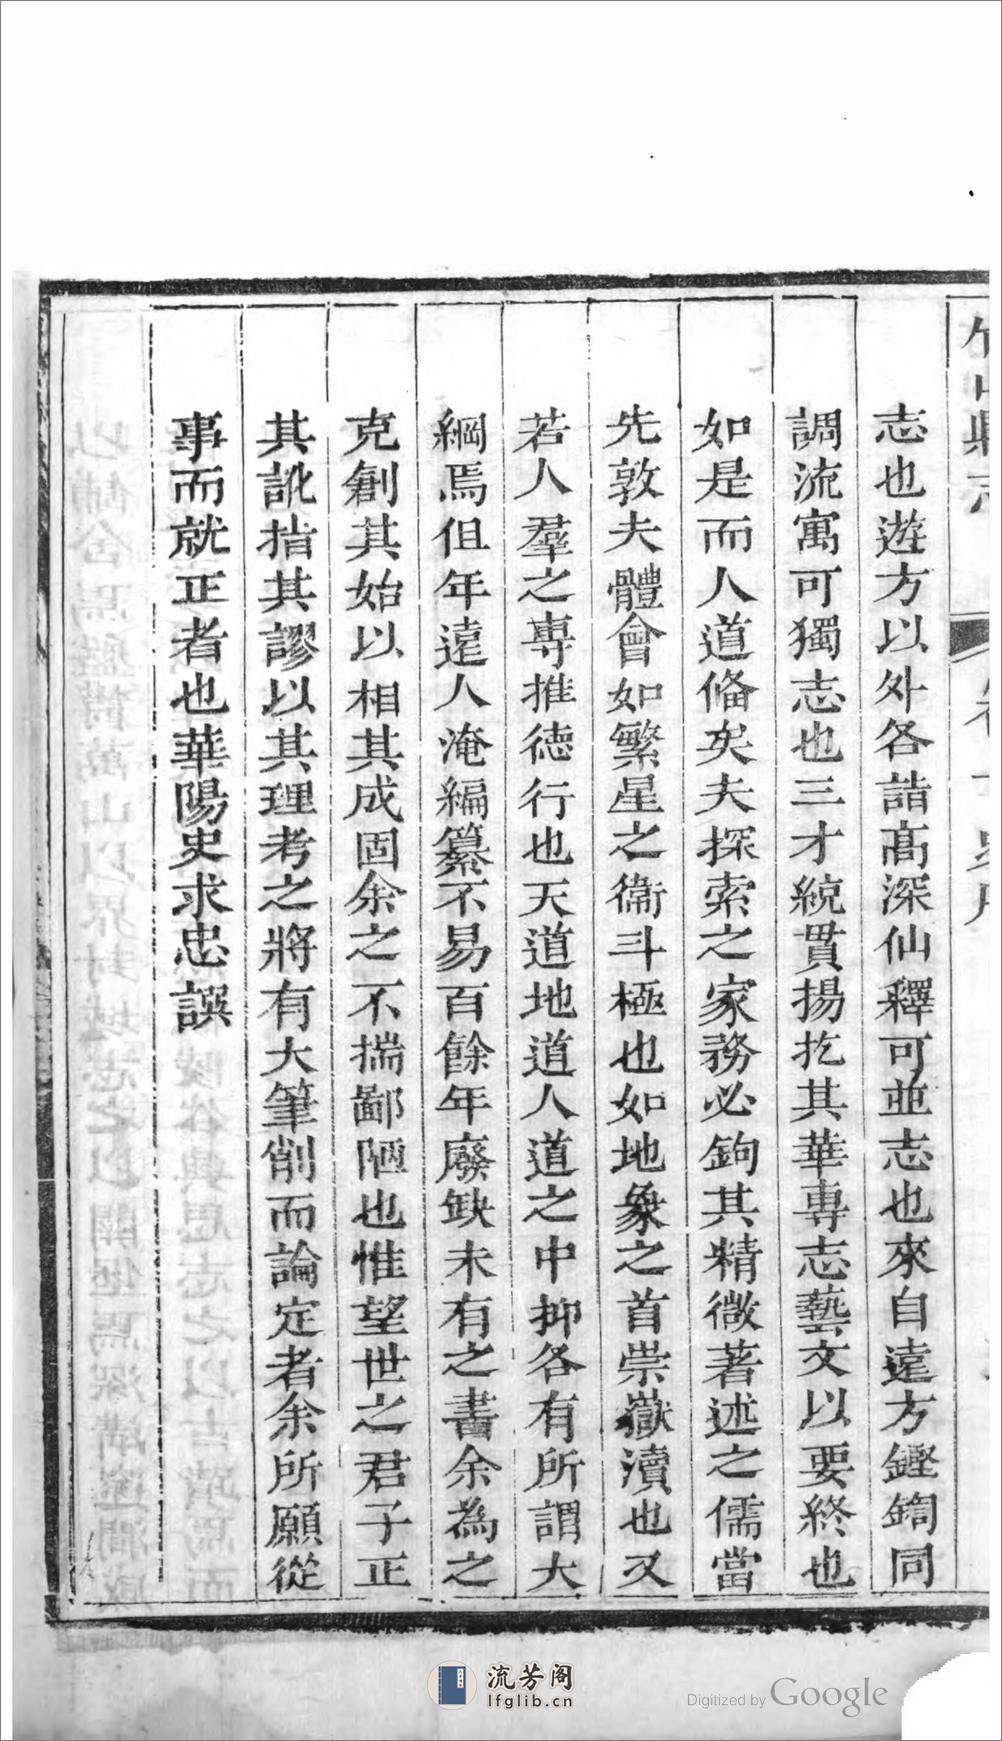 竹山縣志
志也遊方以外各詣高深仙釋可並志也來自遠方鏗鍧同
調流寓可獨志也三才統貫揚扢其華專志藝文以要終也
如是而人道俻矣夫探索之家務必鉤其精微著述之儒當
先敦夫體會如繁星之衞斗極也如地象之首崇嶽瀆也又
若人羣之專推徳行也天道地道人道之中抑各有所謂大
綱焉但年遠人淹編纂不易百餘年廢缺未有之書余為之
克創其始以相其成固余之不揣鄙陋也惟望世之君子正
其訛指其謬以其理考之將有大筆削而論定者余所願從
事而就正者也華陽史求忠譔
流芳阁
lfglib.cn
Digitized by Google